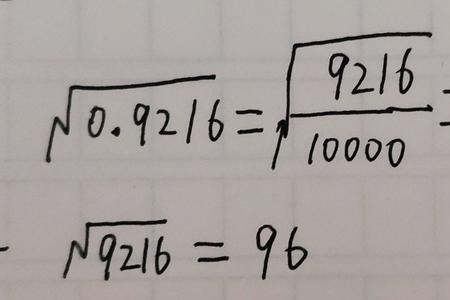 √0.9216 = √(9216/10000) =
- √9216 = 96